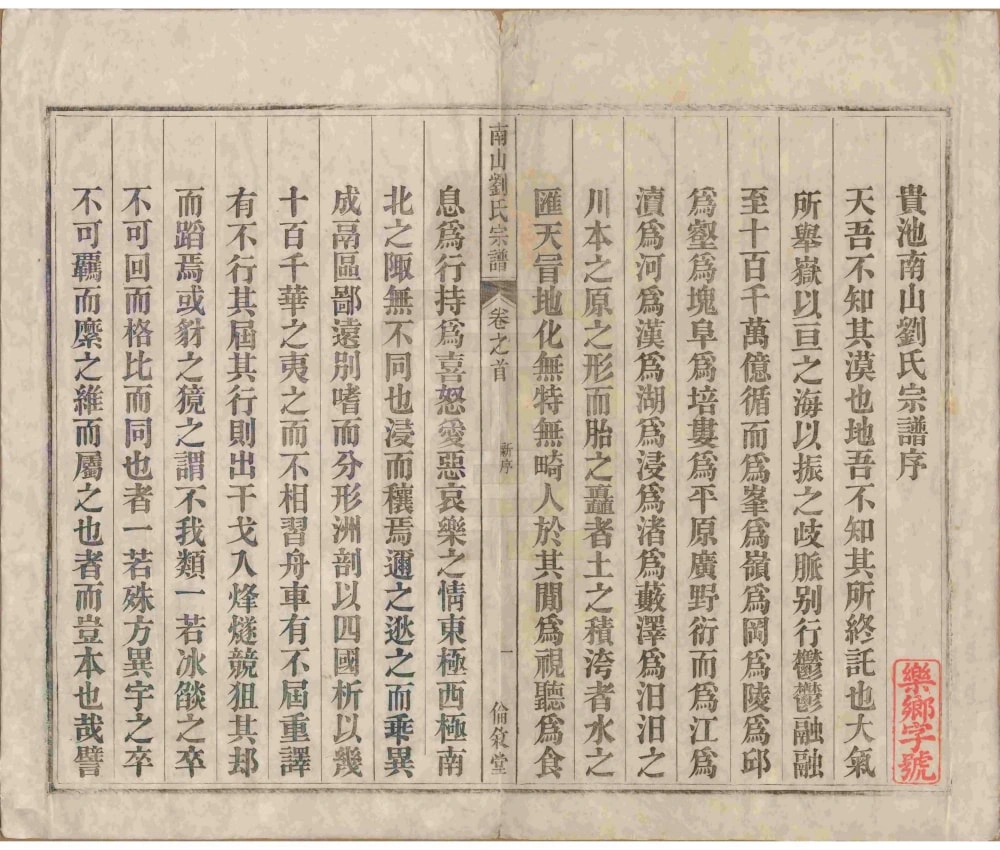 貴池南山劉氏宗譜序
天吾不知其漠也地吾不知其所終託也大氣
所舉嶽以亘之海以振之歧脈别行鬱鬱融融
至十百千萬億循而爲峯爲嶺爲岡爲陵爲邱
爲壑爲塊阜爲培塿爲平原廣野衍而爲江爲
瀆爲河爲漢爲湖爲浸爲渚爲藪澤爲汨汨之
川本之原之形而胎之矗者土之積洿者水之
匯天冒地化無特無畸人於其閒爲視聽爲食
南山劉氏宗譜
卷之首
新序
一
倫敘堂
息爲行持爲喜怒愛惡哀樂之情東極西極南
北之陬無不同也浸而穰焉邇之逖之而乘異
成鬲區鄙遠别嗜而分形洲剖以四國析以幾
十百千華之夷之而不相習舟車有不屆重譯
有不行其屆其行則出干戈入烽燧競狙其郄
而蹈焉或豺之獍之謂不我類一若冰燄之卒
不可回而格比而同也者一若殊方異字之卒
不可羈而縻之維而屬之也者而豈本也哉譬
樂鄉字號